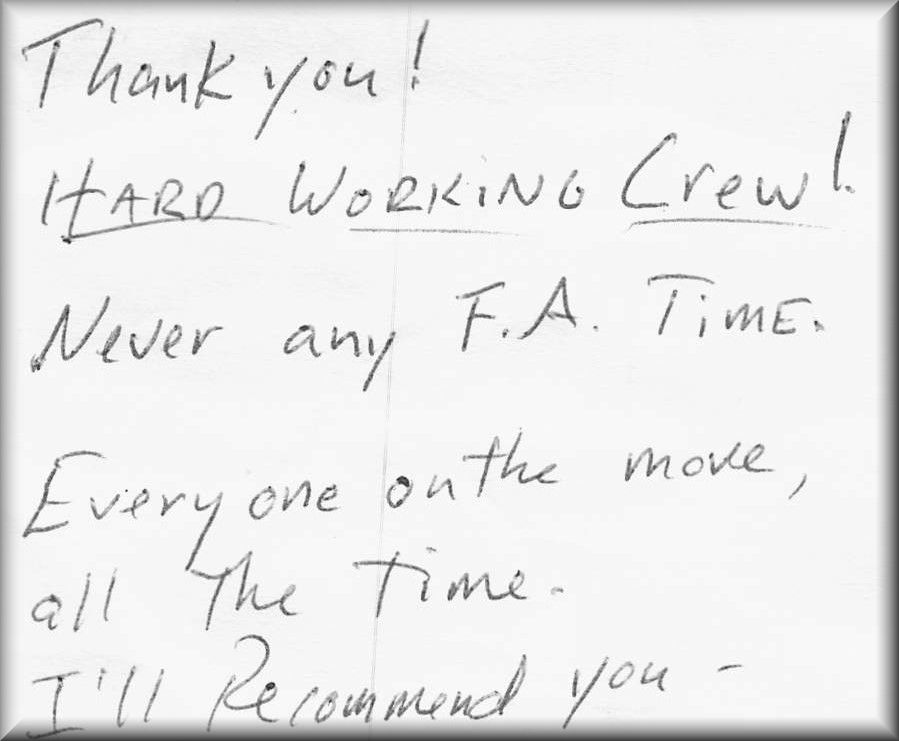 Thank you!
HARD WORKING Crew!
Never any F.A. TIME.
Everyone on the move,
all The Time.
I'll Recommend you -